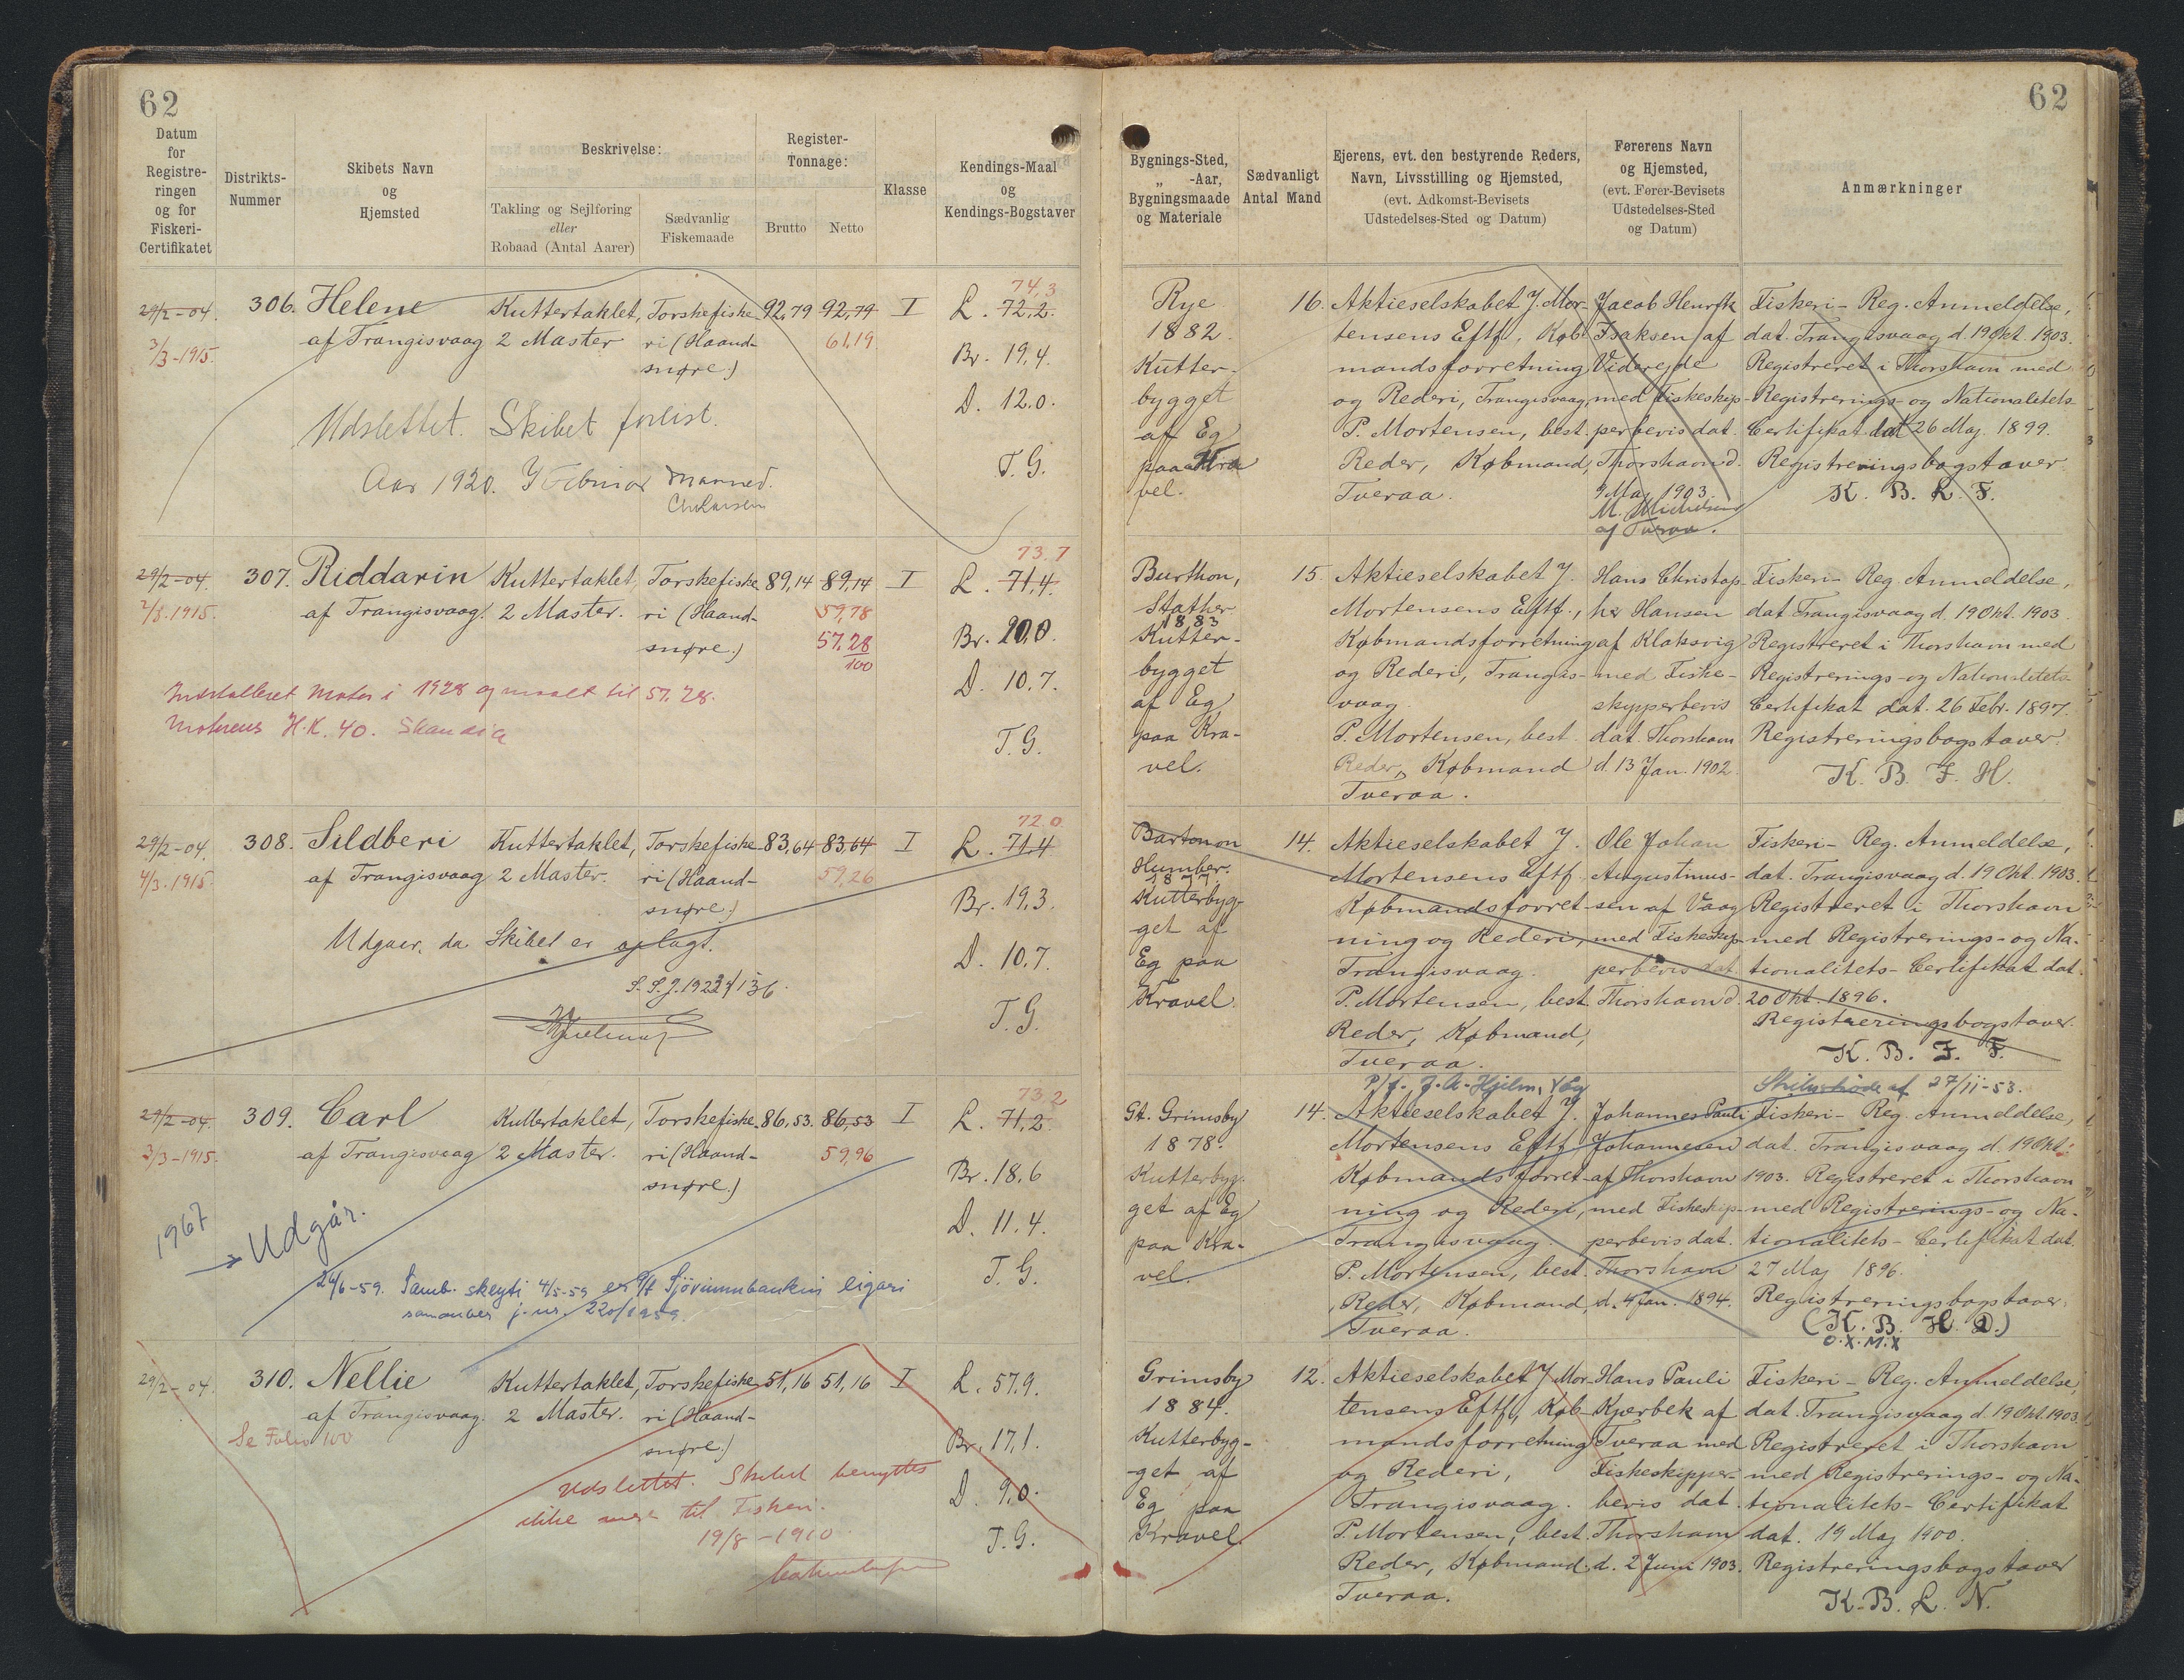 62
62
Datum
for
Registre-
ringen
og for
Fiskeri-
Certifikatet
Distrikts-
Nummer
Skibets Navn
og
Hjemsted
Beskrivelse:
Takling og Sejlføring
eller
Robaad (Antal Aarer)
Sædvanlig
Fiskemaade
Register-
Tonnage:
Brutto
Netto
Klasse
Kendings-Maal
og
Kendings-Bogstaver
Bygnings-Sted,
„ -Aar,
Bygningsmaade
og Materiale
Sædvanligt
Antal Mand
Ejerens, evt. den bestyrende Reders,
Navn, Livsstilling og Hjemsted,
(evt. Adkomst-Bevisets
Udstedelses-Sted og Datum)
Førerens Navn
og Hjemsted,
(evt. Fører-Bevisets
Udstedelses-Sted
og Datum)
Anmærkninger
29/2-04.
3/3-1915.
306. Helene
af Trangisvaag
Kuttertaklet,
2 Master
Torskefiske-
ri (Haand-
snøre.)
92,79
92,79
61,19
I
74,3
L. 72,2.
Br. 19,4.
D. 12,0.
T. G.
Udslettet. Skibet forlist.
Aar 1920. I Februar Maaned.
Rye
1882
Kutter-
bygget
af Eg
paa Kra
vel.
16.
Aktieselskabet J. Mor-
tensens Eftf, Køb-
mandsforretning
og Rederi, Trangisvaag,
P. Mortensen, best.
Reder, Købmand,
Tveraa.
Jacob Henrik
Isaksen af
Viderejde
med Fiskeskip-
perbevis dat.
Thorshavn d.
9 Maj 1903
af Tveraa.
Fiskeri- Reg. Anmeldelse,
dat. Trangisvaag d. 19 Okt. 1903.
Registreret i Thorshavn med
Registrerings- og Nationalitets-
Certifikat dat 26 Maj 1899.
Registreringsbogstaver
K. B. L. F.
29/2-04.
2/3.1915.
307. Riddarin
af Trangisvaag.
Kuttertaklet,
2 Master.
Torskefiske-
ri (Haand-
snøre.)
89,14
89,14
59,78
57.28
100
I
73.7
L. 71,4.
Br. 20,0.
D. 10.7.
T. G.
Indstalleret Motor i 1928 og maalt til 57.28.
Motorens H.K. 40. Skandia
Burthon,
Stather
1883
Kutter-
bygget
af Eg
paa Kra-
vel.
15.
Aktieselskabet J.
Mortensens Eftf.,
Købmandsforretning
og Rederi, Trangis-
vaag.
P. Mortensen, best.
Reder, Købmand
Tveraa.
Hans Christop-
her Hansen
af Klaksvig
med Fiske-
skipperbevis
dat. Thorshavn
d. 13 Jan. 1902.
Fiskeri- Reg. Anmeldelse,
dat. Trangisvaag d. 19 Okt. 1903.
Registreret i Thorshavn med
Registrerings- og Nationalitets-
Certifikat dat. 26 Febr. 1897.
Registreringsbogstaver.
K. B. F. H.
29/2-04.
4/3.1915.
308. Sildberi
af Trangisvaag
Kuttertaklet,
2 Master.
Torskefiske-
ri (Haand-
snøre.)
83,64
83,64
59,26
I
72.0
L. 71,4
Br. 19,3.
D. 10.7.
T. G.
Udgaar, da Skibet er oplagt.
Barton on
Humber.
1877
Kutterbyg-
get af
Eg paa
Kravel.
14.
Aktieselskabet J.
Mortensens Eftf
Købmandsforret-
ning og Rederi,
Trangisvaag.
P. Mortensen, best.
Reder, Købmand,
Tveraa.
Ole Johan
Augustinus-
sen af Vaag
med Fiskeskip-
perbevis dat
Thorshavn d.
Fiskeri- Reg. Anmeldelse,
dat. Trangisvaag d. 19 Okt. 1903.
Registreret i Thorshavn
med Registrerings- og Na-
tionalitets- Certifikat dat.
20 Okt. 1896.
Registreringsbogstaver.
K. B. F. F.
29/2-04.
3/3-1915.
309. Carl
af Trangisvaag
Kuttertaklet,
2 Master.
Torskefiske-
ri (Haand-
snøre.)
86,53.
86,53
59,96
I
73.2
L. 71,2.
Br. 18,6
D. 11.4.
T. G.
1967
→ Udgår.
24/6-59. Samb. skeyti 4/5-59 er P/f Sjóvinnubankin eigari
j. nr. 220/1959.
Gt. Grimsby
1878.
Kutterbyg-
get af Eg
paa Kra-
vel.
14.
Aktieselskabet J.
Mortensens Eftf
Købmandsforret-
ning og Rederi,
Trangisvaag.
P. Mortensen, best.
Reder, Købmand,
Tveraa.
Johannes Pauli
Johannesen
af Thorshavn
med Fiskeskip-
perbevis dat.
Thorshavn
d. 4 Jan. 1894.
27/11-53.
Fiskeri- Reg. Anmeldelse,
dat. Trangisvaag d. 19 Okt.
1903. Registreret i Thorshavn
med Registrerings- og Na-
tionalitets- Certifikat dat.
27 Maj 1896.
Registreringsbogstaver.
(K. B. H. D.)
O.X.M.X
29/2-04.
310. Nellie
af Trangisvaag.
Se Folio 100
Kuttertaklet,
2 Master.
Torskefiske-
ri (Haand-
snøre.)
51,16
51,16
I
L. 57.9.
Br. 17,1.
D. 9,0.
T. G.
Udslettet. Skibet benyttes
ikke mere til Fiskeri.
19/8-1910.
Grimsby
1884.
Kutterbyg-
get af
Eg paa
Kravel.
12.
Aktieselskabet J Mor-
tensens Eftf, Køb-
mandsforretning
og Rederi,
Trangisvaag.
P. Mortensen, best.
Reder, Købmand.
Tveraa.
Hans Pauli
Kjærbek af
Tveraa med
Fiskeskipper-
bevis dat.
Thorshavn
d. 2 Juni 1903.
Fiskeri- Reg. Anmeldelse,
dat. Trangisvaag d. 19 Okt. 1903.
Registreret i Thorshavn
med Registrerings- og Na-
tionalitets- Certifikat
dat. 19 Maj 1900.
Registreringsbogstaver
K. B. L. N.